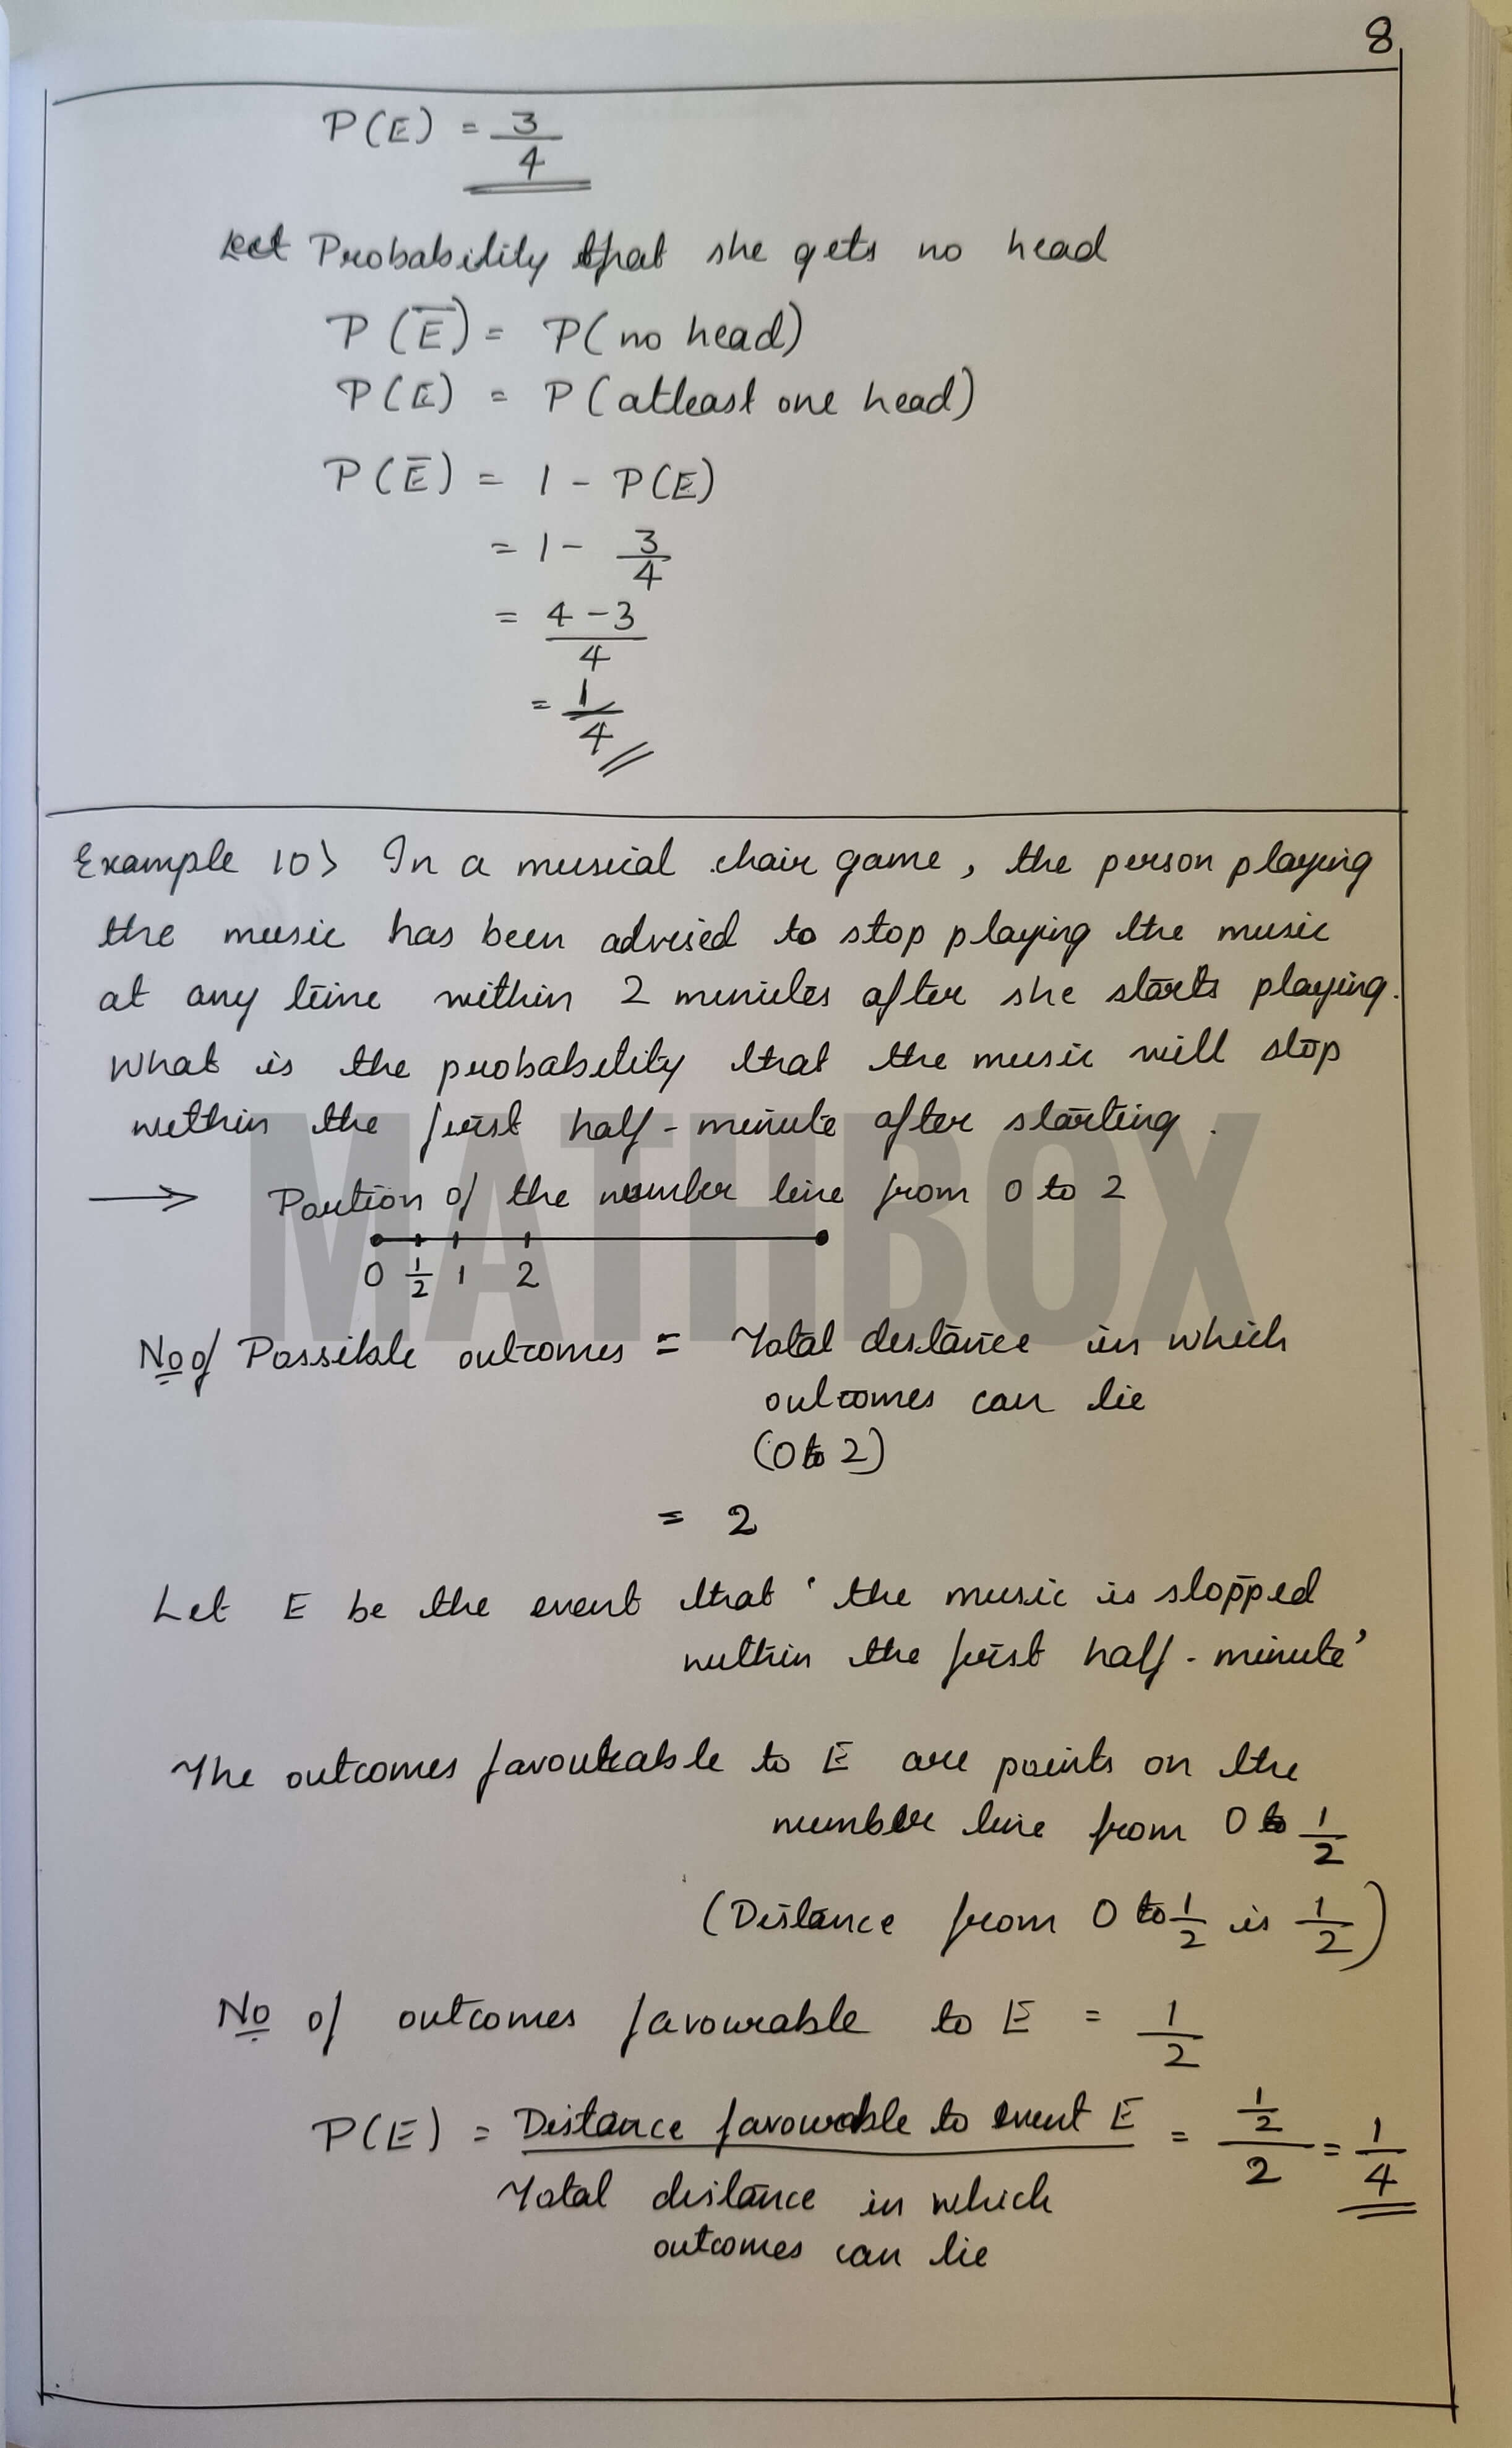 8
P(E) = 3/4
Let Probability that she gets no head
P(E̅) = P(no head)
P(E) = P(atleast one head)
P(E̅) = 1 - P(E)
= 1 - 3/4
= 4-3/4
= 1/4
Example 10> In a musical chair game, the person playing
the music has been advised to stop playing the music
at any time within 2 minutes after she starts playing.
What is the probability that the music will stop
within the first half-minute after starting.
→ Portion of the number line from 0 to 2
0 1/2 1 2
MATHBOX
No of Possible outcomes = Total distance in which
outcomes can lie
(0 to 2)
= 2
Let E be the event that 'the music is stopped
within the first half-minute'
The outcomes favourable to E are points on the
number line from 0 to 1/2
(Distance from 0 to 1/2 is 1/2)
No of outcomes favourable to E = 1/2
P(E) = Distance favourable to event E = 1/2 / 2 = 1/4
Total distance in which
outcomes can lie